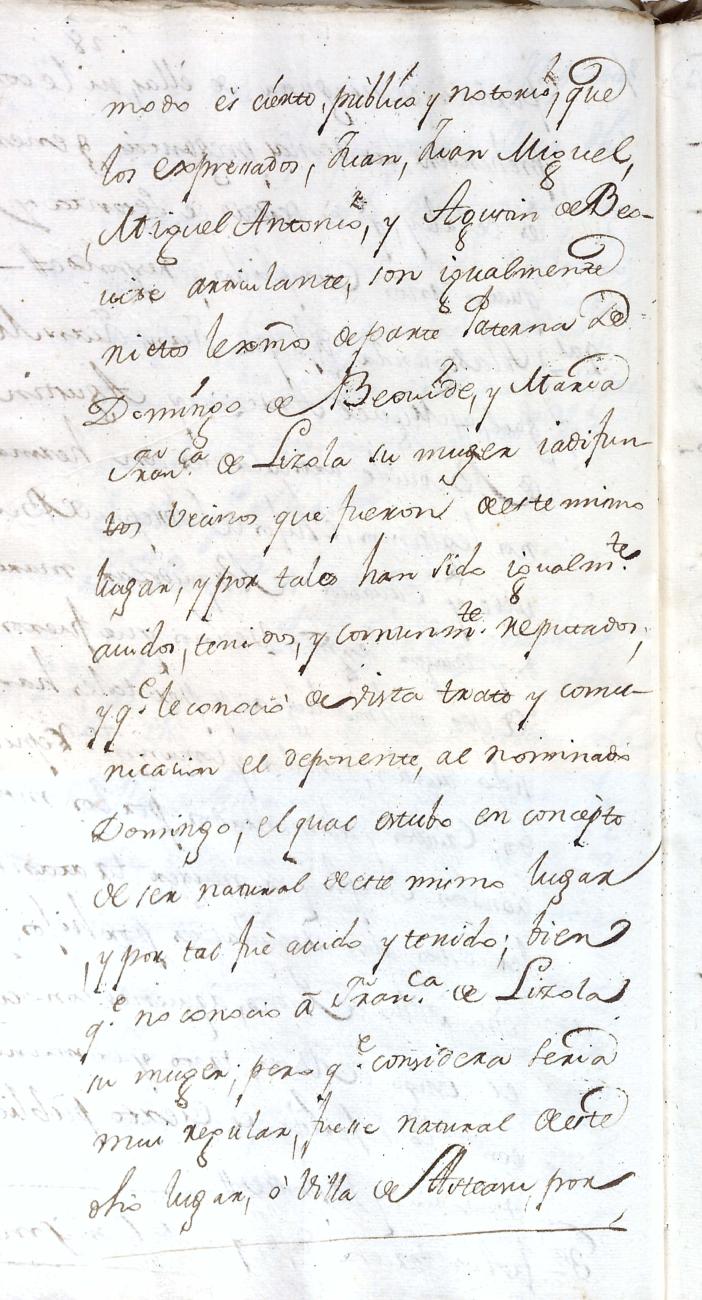 modo és ciérto, público y notorio, que
los expressados, Juan, Juan Miguel,
Miguel Antonio, y Agustin de Beo-
vide articulante, son igualmente
nietos lexmos de parte Paterna de
Domingo de Beovide, y Maria
Fran.ca de Lizola su muger iadifun-
tos vecinos que fueron de este mismo
lugar, y por tales han sido igualm.te
auidos, tenidos, y comunm.te Reputados,
y q.e le conoció de vista trato y comu-
nicacion el deponente, al nominado
Domingo, el qual estubo en concépto
de ser natural de este mismo lugar
y por tal fue auido y tenido; bien
q.e no conocio a Fran.ca de Lizola
su muger; pero q.e considera seria
mui regular, fuesse natural de este
dho lugar, ò Villa de Asteasu, por